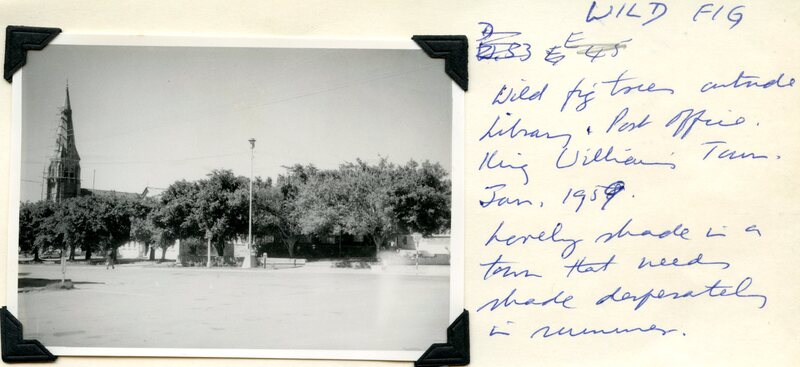 WILD FIG
D E
33 45
Wild fig trees outside
Library & Post Office.
King William's Town.
Jan. 1959.
Lovely shade in a
town that needs
shade desperately
in summer.